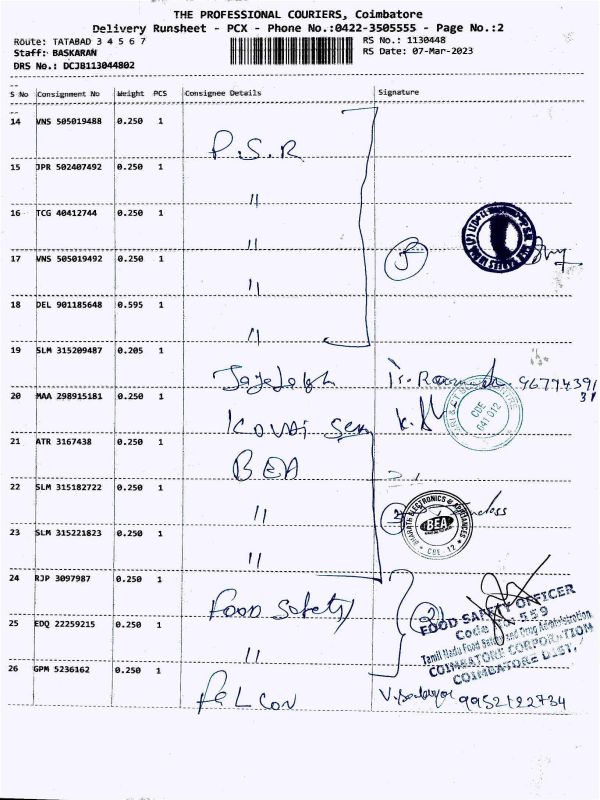 THE PROFESSIONAL COURIERS, Coimbatore
Delivery Runsheet - PCX - Phone No.:0422-3505555 - Page No.:2
Route: TATABAD 3 4 5 6 7
RS No.: 1130448
Staff: BASKARAN
RS Date: 07-Mar-2023
DRS No.: DCJB113044802
S No Consignment No Weight PCS Consignee Details Signature
14 VNS 505019488 0.250 1
P.S.R
15 JPR 502407492 0.250 1
"
16 TCG 40412744 0.250 1
"
17 VNS 505019492 0.250 1
5
"
18 DEL 901185648 0.595 1
"
19 SLM 315209487 0.205 1
96774391
31
20 MAA 298915181 0.250 1
KOVAI
CDE
641 012
21 ATR 3167438 0.250 1
BEA
22 SLM 315182722 0.250 1
"
BHARATH ELECTRONICS & APPLIANCES
BEA
CBE 12
23 SLM 315221823 0.250 1
"
24 RJP 3097987 0.250 1
Food Safety
2
FOOD SAFETY OFFICER
Code No: 559
25 EDQ 22259215 0.250 1
"
Tamil Nadu Food Safety and Drug Administration
COIMBATORE CORPORATION
COIMBATORE DIST.
26 GPM 5236162 0.250 1
FALCON
9952122734